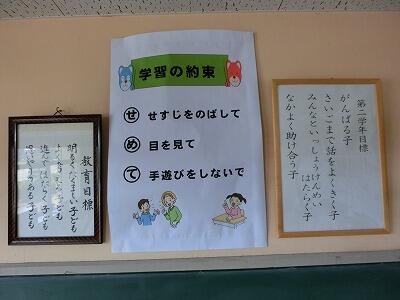 学習の約束
せ せすじをのばして
め 目を見て
て 手遊びをしないで
第二学年目標
がんばる子
さいごまで話をよくきく子
みんなといっしょうけんめい
はたらく子
なかよく助け合う子
教育目標
明るくたくましい子ども
よく考える子ども
進んではたらく子ども
思いやりのある子ども